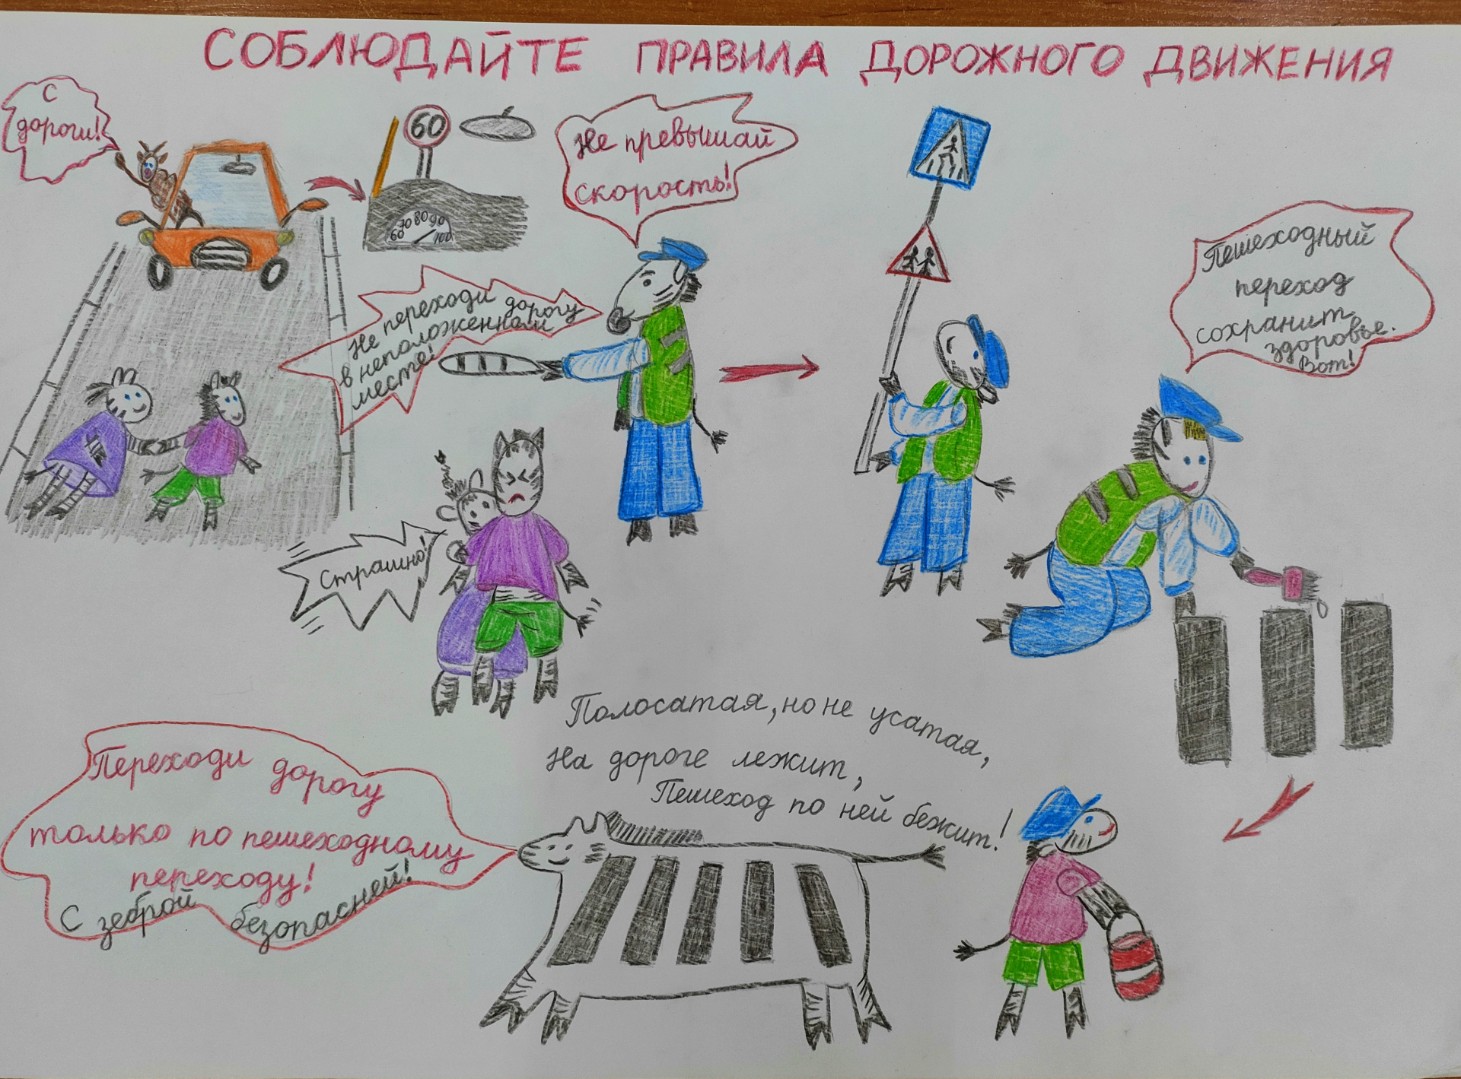 СОБЛЮДАЙТЕ ПРАВИЛА ДОРОЖНОГО ДВИЖЕНИЯ
С
дороги!
60
60 70 80 90
100
Не превышай
скорость!
Не переходи дорогу
в неположенном
месте!
Страшно!
Пешеходный
переход
сохранит
здоровье.
Вот!
Полосатая, но не усатая,
На дороге лежит,
Пешеход по ней бежит!
Переходи дорогу
только по пешеходному
переходу!
С зеброй безопасней!